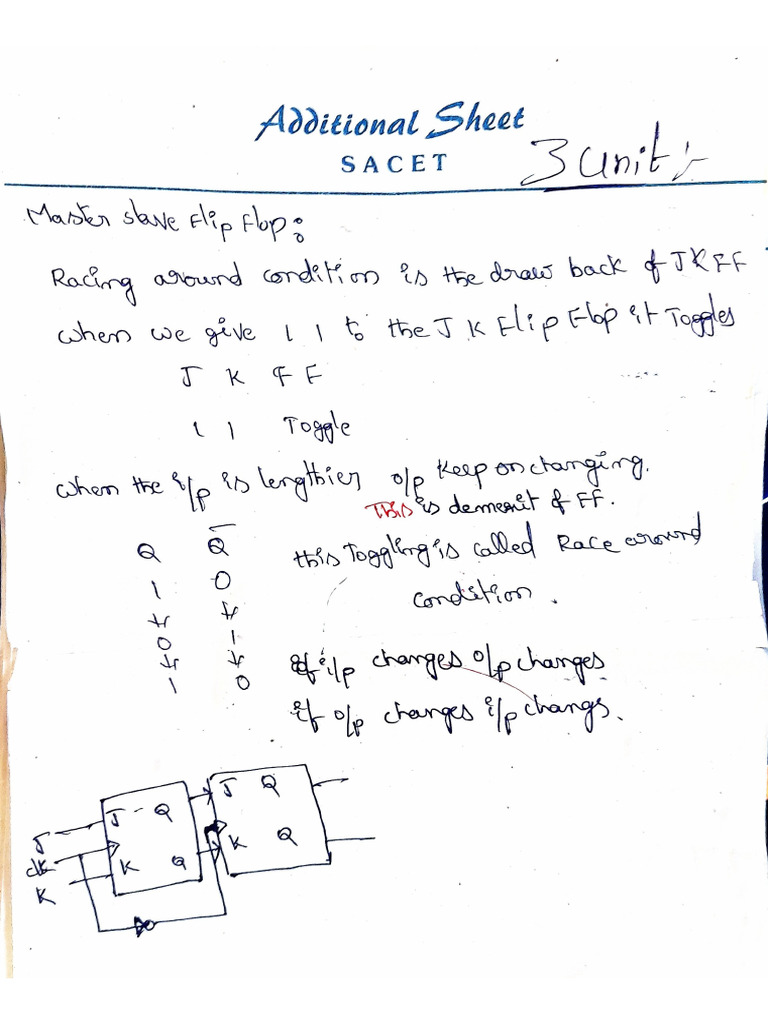 Additional Sheet
SACET
3 unit :-
Master slave Flip Flop :
Racing around condition is the draw back of JKFF
when we give 1 1 to the J K Flip Flop it Toggles
J K FF
1 1 Toggle
when the i/p is lengthier o/p keep on changing.
This is demerit of FF.
Q Q̅
this Toggling is called Race around
1 0
condition.
0 1
if i/p changes o/p changes
1 0
if o/p changes i/p changs.
J Q
J - Q
J
clk
K Q
K Q
K